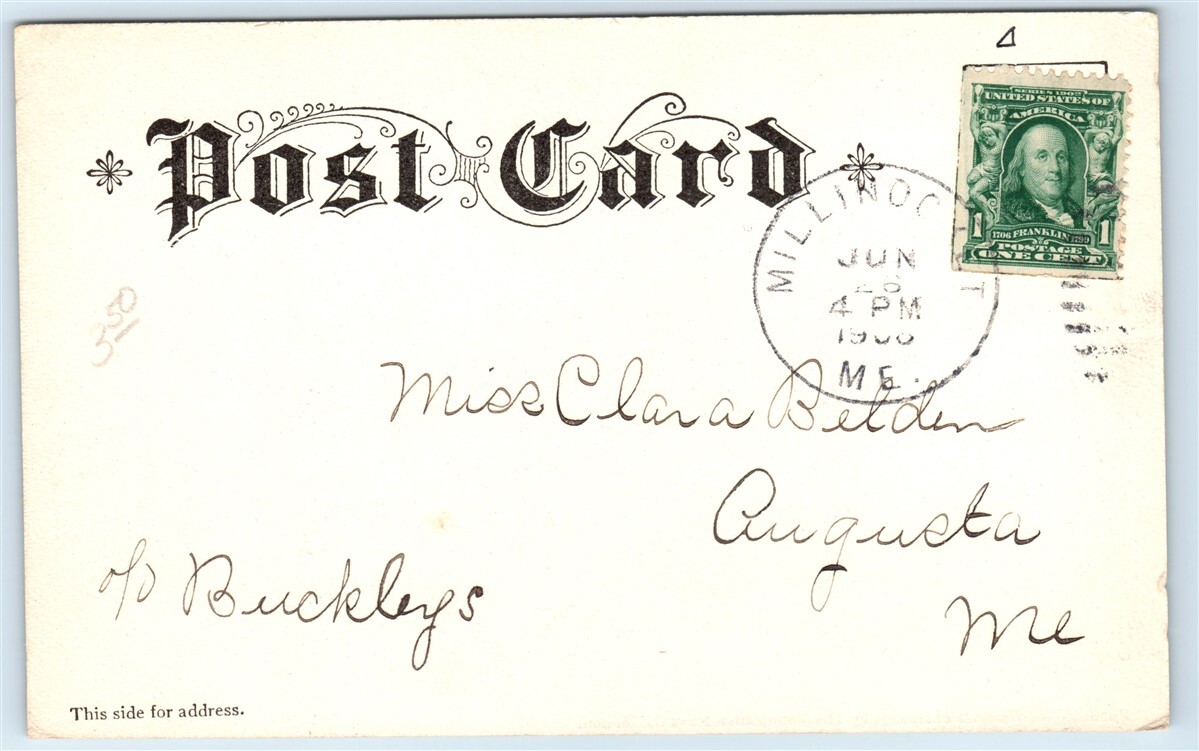 Post Card
SERIES 1902
UNITED STATES OF
AMERICA
1 1706 FRANKLIN 1790 1
POSTAGE
ONE CENT
MILLINOCKET
JUN
26
4 PM
ME.
3 50
Miss Clara Belden
Augusta
c/o Buckleys
Me
This side for address.